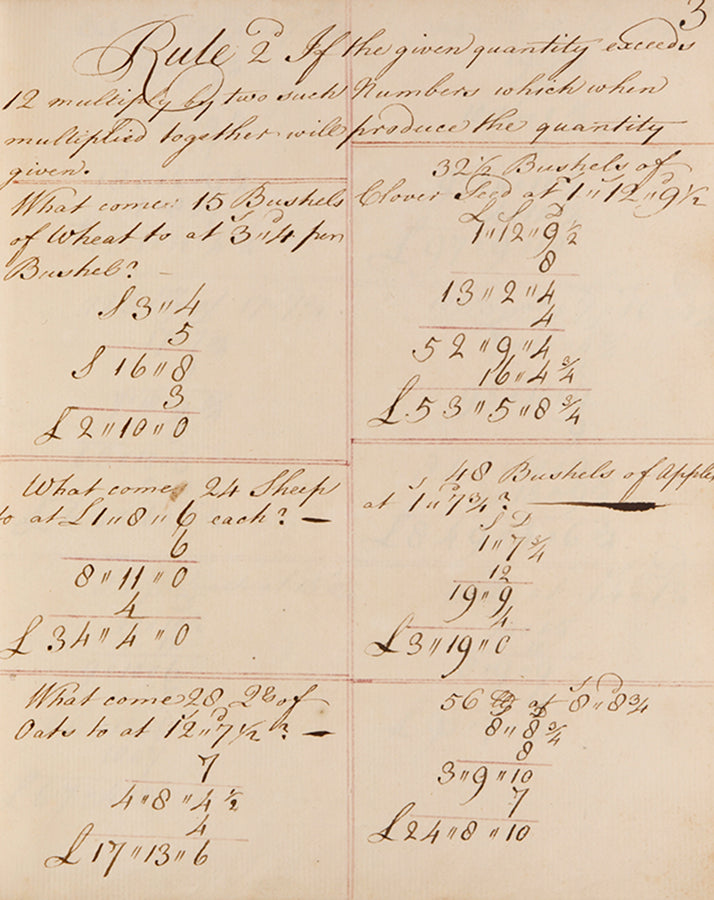 3
Rule 2d If the given quantity exceeds
12 multiply by two such Numbers which when
multiplied together will produce the quantity
given.
What come 15 Bushels
of Wheat to at 3s"4d per
Bushel?
S 3"4
5
S 16"8
3
£2"10"0
What come 24 Sheep
to at £1"8"6 each? —
6
8"11"0
4
£34"4"0
What come 28 2rs of
Oats to at 12s"7d½? —
7
4"8"4½
4
£17"13"6
32½ Bushels of
Clover Seed at £1"12s"9d½
£ S D
1"12"9½
8
13"2"4
4
52"9"4
16"4¾
£53"5"8¾
48 Bushels of Apples
at 1s"7d¾? —
S D
1"7¾
12
19"9
4
£3"19"0
56 at 8s"8d¾
8"8¾
8
3"9"10
7
£24"8"10